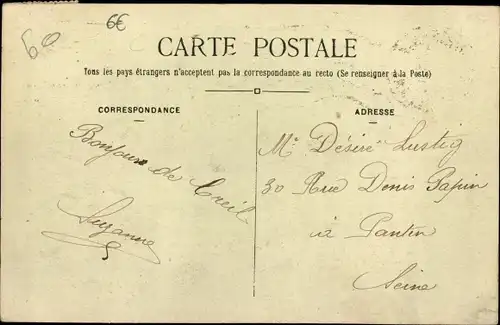 60
6€
CARTE POSTALE
Tous les pays étrangers n'acceptent pas la correspondance au recto (Se renseigner à la Poste)
CORRESPONDANCE
Bonjour de Creil
Suzanne
ADRESSE
Mr Désiré Lustig
30 Rue Denis Papin
à Pantin
Seine